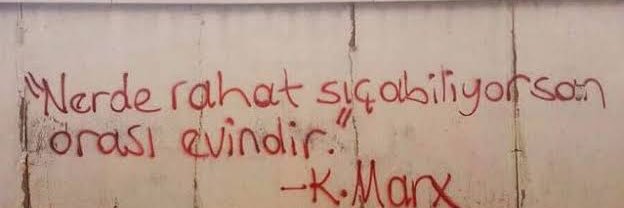 "Nerde rahat sıçabiliyorsan
orası evindir."
-K. Marx